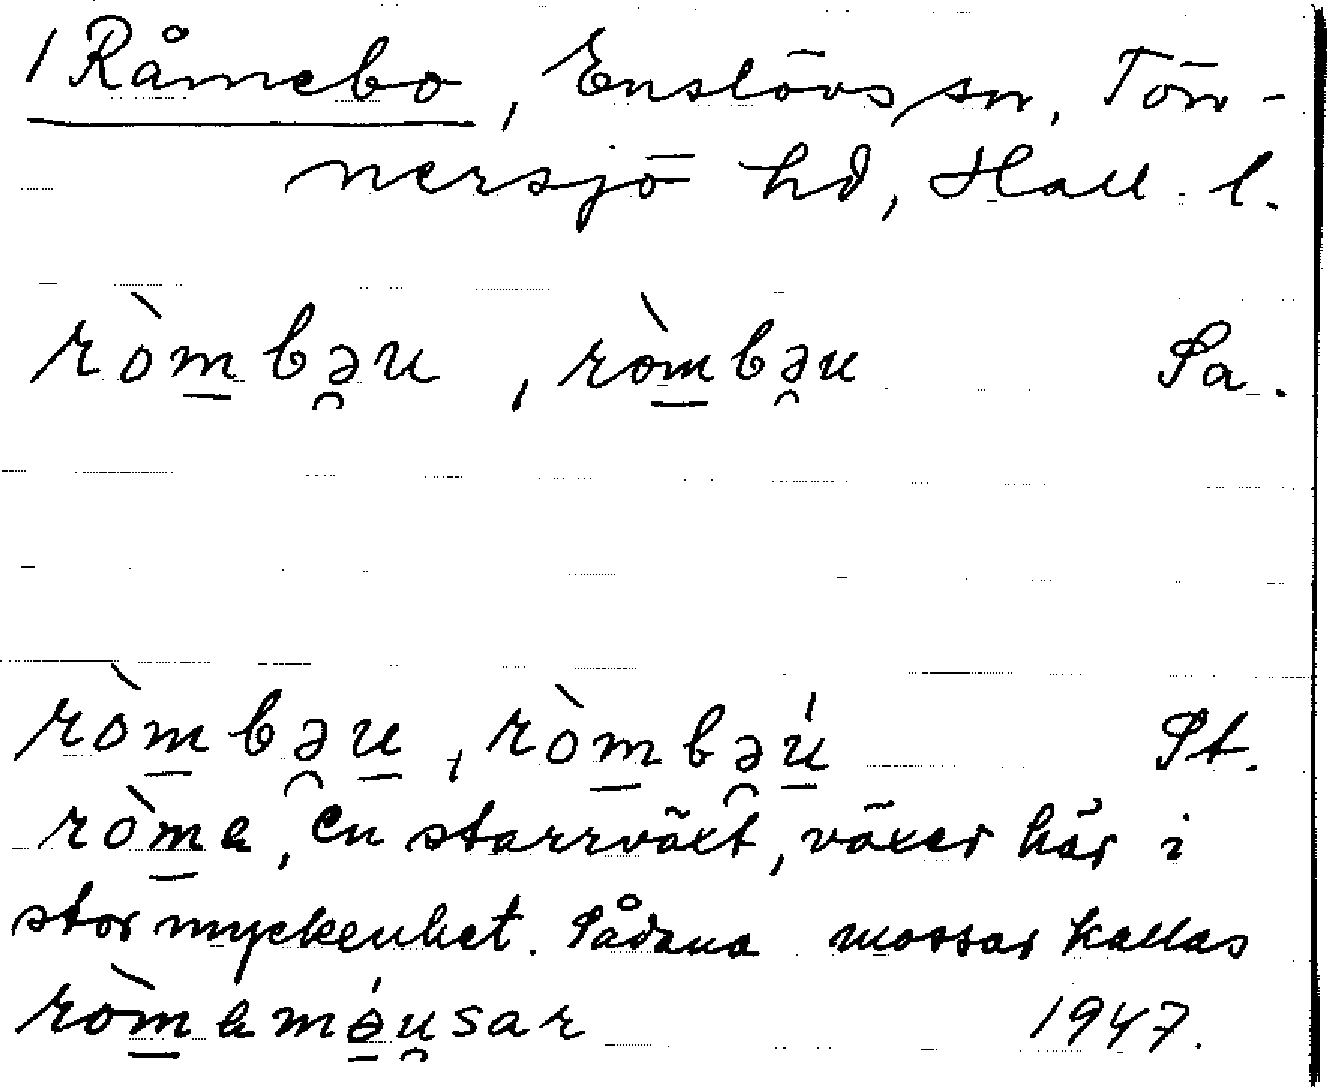 1 Råmebo, Enslövs sn, Tön-
nersjö hd, Hall. l.
ròm̲bə̯u, ròm̲bə̯u Sa.
ròm̲bə̯u̲, ròm̲bə̯ú̲ St.
ròm̲a, en starrväxt, växer här i
stor myckenhet. Sådana mossar kallas
ròm̲amə̲́u̯sar 1947.